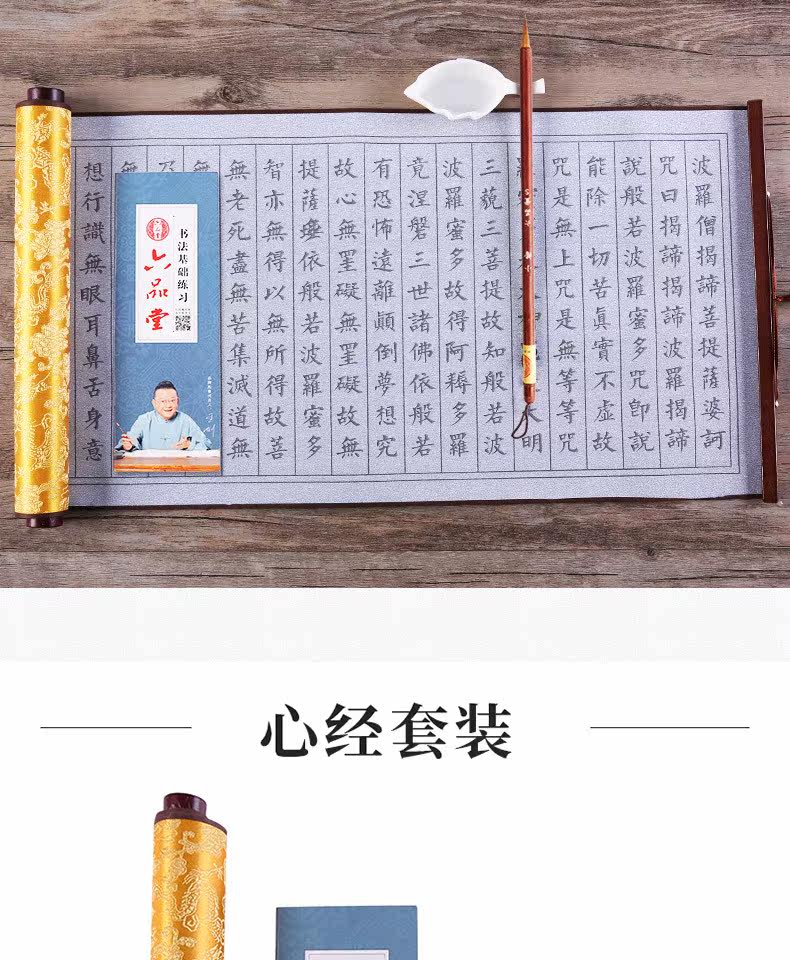 想行識無眼耳鼻舌身意
無
乃
無
六品堂
书法基础练习
無老死盡無苦集滅道無
智亦無得以無所得故菩
提薩埵依般若波羅蜜多
故心無罣礙無罣礙故無
有恐怖遠離顛倒夢想究
竟涅磐三世諸佛依般若
波羅蜜多故得阿耨多羅
三藐三菩提故知般若波
羅 明
咒是無上咒是無等等咒
能除一切苦眞實不虛故
說般若波羅蜜多咒卽說
咒曰揭諦揭諦波羅揭諦
波羅僧揭諦菩提薩婆訶
心经套装